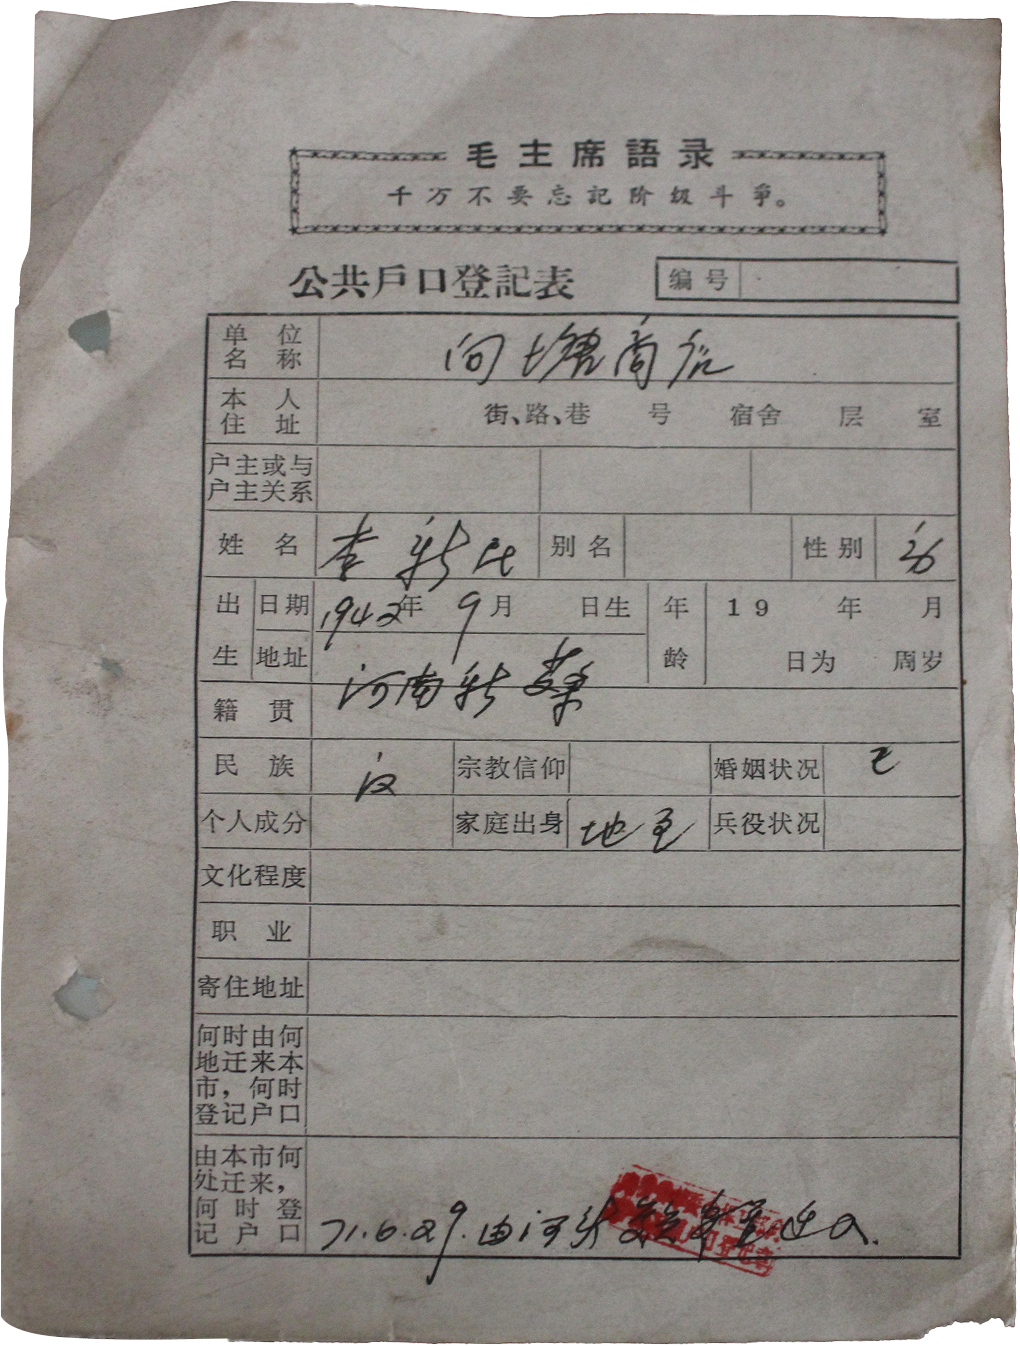 毛主席語录
千万不要忘記阶級斗爭。
公共戶口登記表
编号
单位名称 向塘商店
本人住址 街、路、巷 号 宿舍 层 室
户主或与户主关系
姓名 李新民 别名 性别 男
出生 日期 1942年9月 日生 年龄 19 年 月
地址 河南新蔡 日为 周岁
籍贯
民族 汉 宗教信仰 婚姻状况 已
个人成分 家庭出身 地主 兵役状况
文化程度
职业
寄住地址
何时由何
地迁来本
市，何时
登记户口
由本市何
处迁来，
何时登
记户口 71.6.29.由河头 迁入.